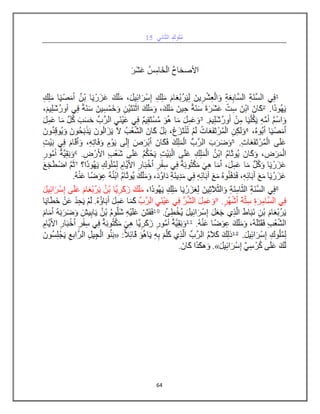 15 ملوك الثاني
اَلأَصحَاحُ الْخَامِسُ عَشَرَ
1فِي السَّنَةِ السَّابِعَةِ وَالْعِشْرِينَ لِيَرُبْعَامَ مَلِكِ إِسْرَائِيلَ، مَلَكَ عَزَرْيَا بْنُ أَمَصْيَا مَلِكِ
يَهُوذَا. 2كَانَ ابْنَ سِتَّ عَشَرَةَ سَنَةً حِينَ مَلَكَ، وَمَلَكَ اثْنَتَيْنِ وَخَمْسِينَ سَنَةً فِي أُورُشَلِيمَ،
وَاسْمُ أُمِّهِ يَكُلْيَا مِنْ أُورُشَلِيمَ. 3وَعَمِلَ مَا هُوَ مُسْتَقِيمٌ فِي عَيْنَيِ الرَّبِّ حَسَبَ كُلِّ مَا عَمِلَ
أَمَصْيَا أَبُوهُ، 4وَلكِنِ الْمُرْتَفَعَاتُ لَمْ تُنْتَزَعْ، بَلْ كَانَ الشَّعْبُ لاَ يَزَالُونَ يَذْبَحُونَ وَيُوقِدُونَ
عَلَى الْمُرْتَفَعَاتِ. 5وَضَرَبَ الرَّبُّ الْمَلِكَ فَكَانَ أَبْرَصَ إِلَى يَوْمِ وَفَاتِهِ، وَأَقَامَ فِي بَيْتِ
الْمَرَضِ، وَكَانَ يُوثَامُ ابْنُ الْمَلِكِ عَلَى الْبَيْتِ يَحْكُمُ عَلَى شَعْبِ الأَرْضِ. 6وَبَقِيَّةُ أُمُورِ
عَزَرْيَا وَكُلُّ مَا عَمِلَ، أَمَا هِيَ مَكْتُوبَةٌ فِي سِفْرِ أَخْبَارِ الأَيَّامِ لِمُلُوكِ يَهُوذَا؟ 7ثُمَّ اضْطَجَعَ
عَزَرْيَا مَعَ آبَائِهِ، فَدَفَنُوهُ مَعَ آبَائِهِ فِي مَدِينَةِ دَاوُدَ، وَمَلَكَ يُوثَامُ ابْنُهُ عِوَضًا عَنْهُ.
8فِي السَّنَةِ الثَّامِنَةِ وَالثَّلاَثِينَ لِعَزَرْيَا مَلِكِ يَهُوذَا، مَلَكَ زَكَرِيَّا بْنُ يَرُبْعَامَ عَلَى إِسْرَائِيلَ
فِي السَّامِرَةِ سِتَّةَ أَشْهُرٍ. 9وَعَمِلَ الشَّرَّ فِي عَيْنَيِ الرَّبِّ كَمَا عَمِلَ آبَاؤُهُ. لَمْ يَحِدْ عَنْ خَطَايَا
يَرُبْعَامَ بْنِ نَبَاطَ الَّذِي جَعَلَ إِسْرَائِيلَ يُخْطِئُ. 10فَفَتَنَ عَلَيْهِ شَلُّومُ بْنُ يَابِيشَ وَضَرَبَهُ أَمَامَ
الشَّعْبِ فَقَتَلَهُ، وَمَلَكَ عِوَضًا عَنْهُ. 11وَبَقِيَّةُ أُمُورِ زَكَرِيَّا هِيَ مَكْتُوبَةٌ فِي سِفْرِ أَخْبَارِ الأَيَّامِ
لِمُلُوكِ إِسْرَائِيلَ. 12ذلِكَ كَلاَمُ الرَّبِّ الَّذِي كَلَّمَ بِهِ يَاهُوَ قَائِلاً: «بَنُو الْجِيلِ الرَّابعِ يَجْلِسُونَ
لَكَ عَلَى كُرْسِيِّ إِسْرَائِيلَ». وَهكَذَا كَانَ.
64